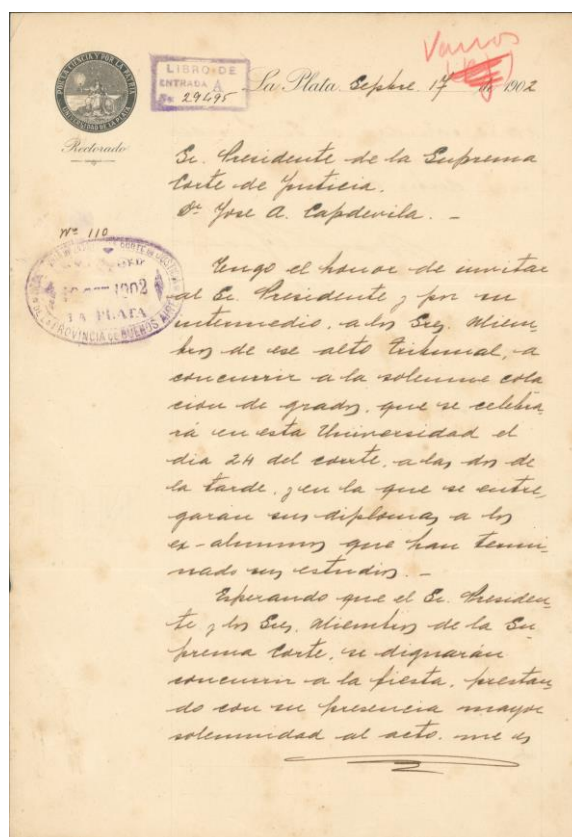 Varios
POR LA CIENCIA Y POR LA PATRIA
UNIVERSIDAD DE LA PLATA
Rectorado
LIBRO DE
ENTRADA A
No 29495
La Plata Sepbre. 17 de 1902
Sr. Presidente de la Suprema
Corte de Justicia.
Dr. Jose A. Capdevila. -
Nº 110
CORTE DE JUSTICIA
1902
LA PLATA
DE LA PROVINCIA DE BUENOS AIRES
Tengo el honor de invitar
al Sr. Presidente y por su
intermedio, a los Sres. Miem-
bros de ese alto tribunal, a
concurrir a la solemne cola
cion de grados, que se celebra
rá en esta Universidad el
dia 24 del corrte, a las dos de
la tarde, y en la que se entre-
garán sus diplomas a los
ex-alumnos que han termi-
nado sus estudios. -
Esperando que el Sr. Presiden-
te y los Sres. Miembros de la Su
prema Corte, se dignarán
concurrir a la fiesta, prestan-
do con su presencia mayor
solemnidad al acto, me es